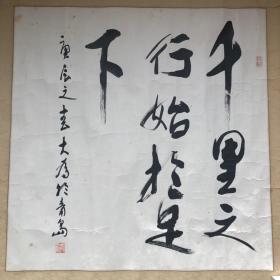 千里之
行始於足
下
庚辰之春大為於青島